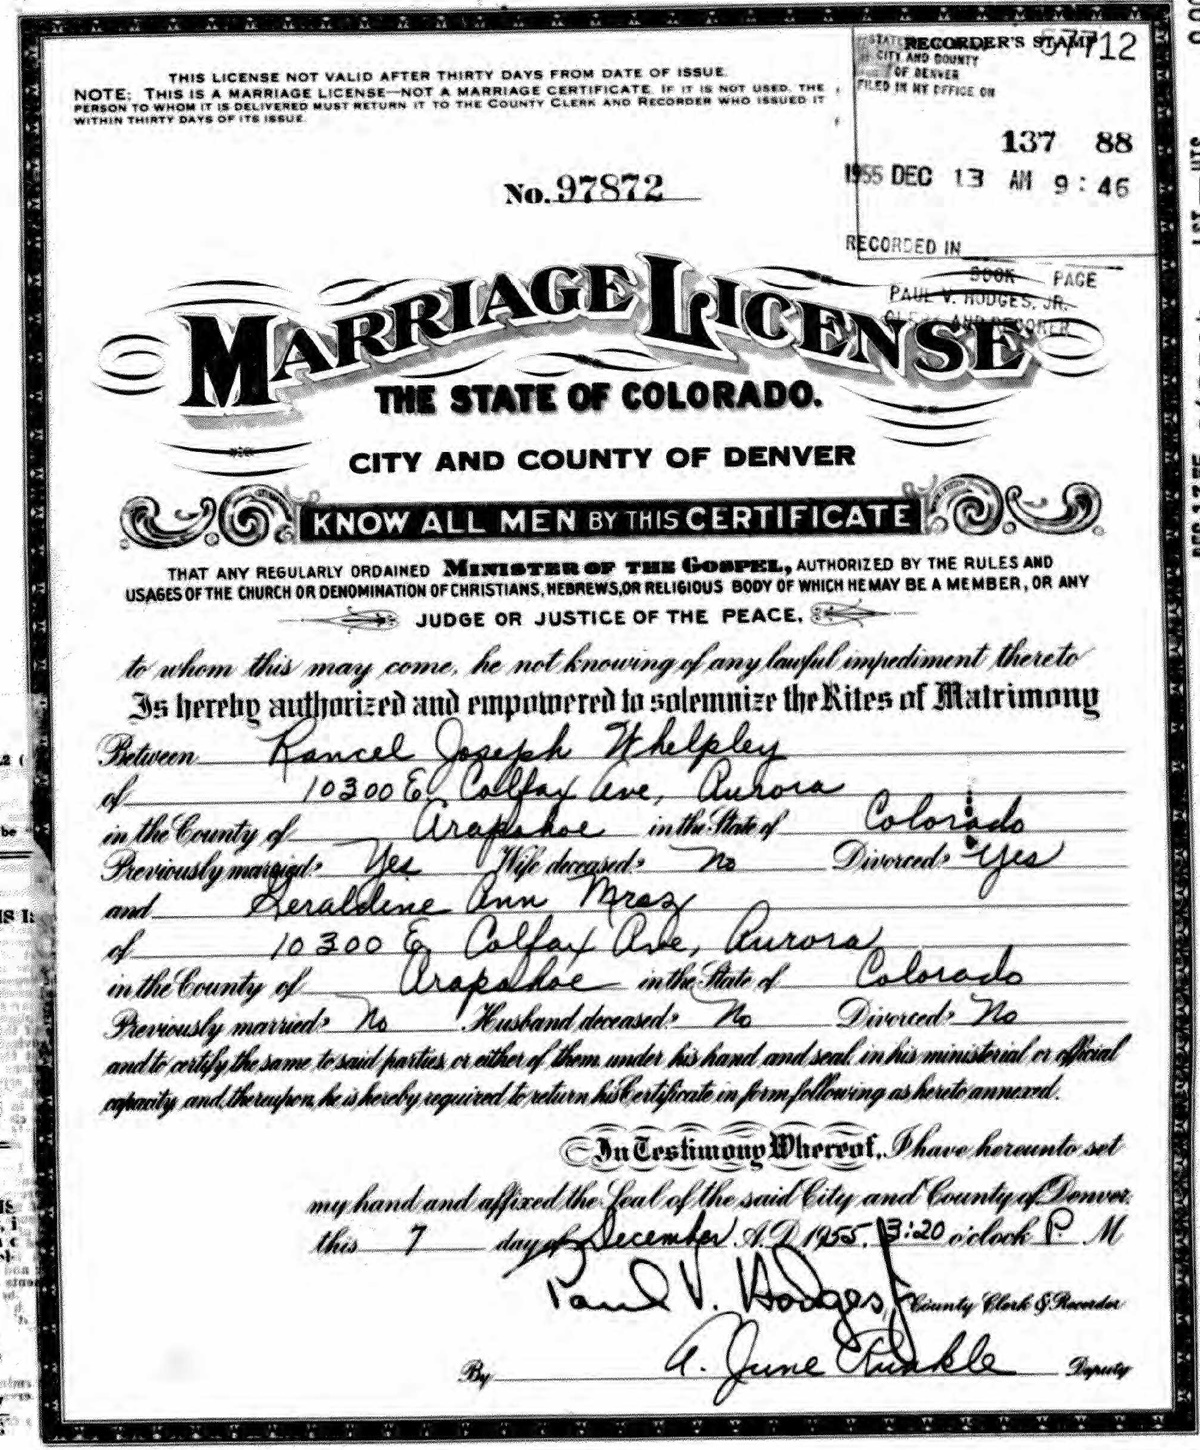 THIS LICENSE NOT VALID AFTER THIRTY DAYS FROM DATE OF ISSUE.
NOTE: THIS IS A MARRIAGE LICENSE—NOT A MARRIAGE CERTIFICATE. IF IT IS NOT USED, THE
PERSON TO WHOM IT IS DELIVERED MUST RETURN IT TO THE COUNTY CLERK AND RECORDER WHO ISSUED IT
WITHIN THIRTY DAYS OF ITS ISSUE.
RECORDER'S STAMP 57712
STATE
CITY AND COUNTY
OF DENVER
FILED IN MY OFFICE ON
137 88
1955 DEC 13 AM 9:46
RECORDED IN
BOOK PAGE
PAUL V. HODGES, JR.
CLERK AND RECORDER
No. 97872
MARRIAGE LICENSE
THE STATE OF COLORADO.
CITY AND COUNTY OF DENVER
KNOW ALL MEN BY THIS CERTIFICATE
THAT ANY REGULARLY ORDAINED MINISTER OF THE GOSPEL, AUTHORIZED BY THE RULES AND
USAGES OF THE CHURCH OR DENOMINATION OF CHRISTIANS, HEBREWS, OR RELIGIOUS BODY OF WHICH HE MAY BE A MEMBER, OR ANY
JUDGE OR JUSTICE OF THE PEACE,
to whom this may come, he not knowing of any lawful impediment thereto
Is hereby authorized and empowered to solemnize the Rites of Matrimony
Between Rancel Joseph Whelpley
of 10300 E. Colfax Ave, Aurora
in the County of Arapahoe in the State of Colorado
Previously married? Yes Wife deceased? No Divorced? Yes
and Geraldine Ann Mraz
of 10300 E. Colfax Ave, Aurora
in the County of Arapahoe in the State of Colorado
Previously married? No Husband deceased? No Divorced? No
and to certify the same to said parties, or either of them, under his hand and seal, in his ministerial or official
capacity and, thereupon, he is hereby required to return his Certificate in form following as hereto annexed.
In Testimony Whereof, I have hereunto set
my hand and affixed the Seal of the said City and County of Denver.
this 7 day of December A.D. 1955, 3:20 o'clock P. M
Paul V. Hodges, Jr. County Clerk & Recorder
By A. June Runkle Deputy